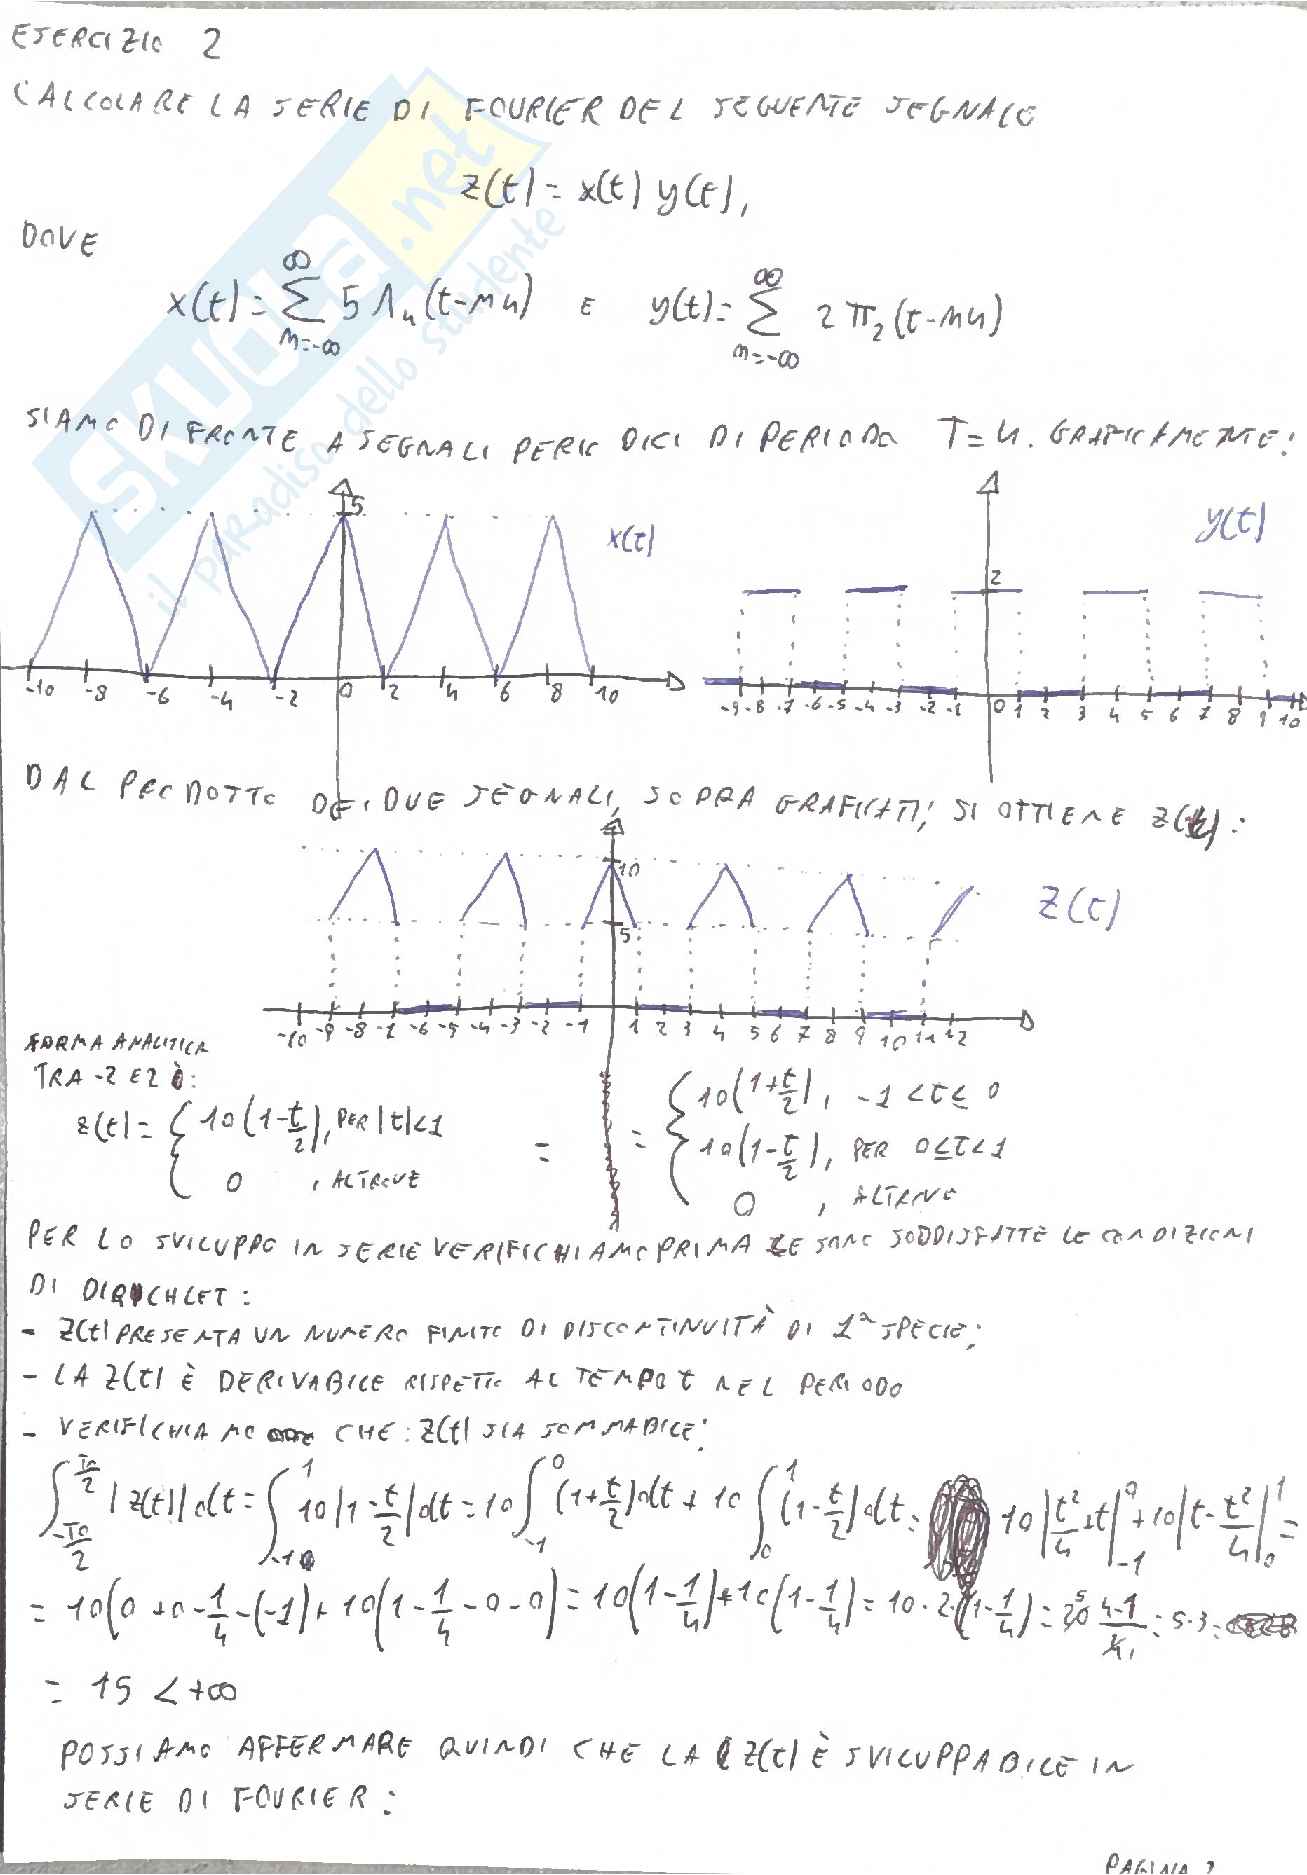 ESERCIZIO 2
CALCOLARE LA SERIE DI FOURIER DEL SEGUENTE SEGNALE
z(t) = x(t) y(t),
DOVE
x(t) = ∑_{n=-∞}^{∞} 5 Λ₄ (t-n4) E y(t) = ∑_{n=-∞}^{∞} 2 π₂ (t-n4)
SIAMO DI FRONTE A SEGNALI PERIODICI DI PERIODO T=4. GRAFICAMENTE:
5 x(t)
-10 -8 -6 -4 -2 0 2 4 6 8 10
2 y(t)
-9 -8 -7 -6 -5 -4 -3 -2 -1 0 1 2 3 4 5 6 7 8 9 10
DAL PRODOTTO DEI DUE SEGNALI, SOPRA GRAFICATI, SI OTTIENE z(t):
10 z(t)
5
-10 -9 -8 -7 -6 -5 -4 -3 -2 -1 1 2 3 4 5 6 7 8 9 10 11 12
FORMA ANALITICA
TRA -2 E 2 È:
z(t) = { 10(1-t/2), PER |t|<1 = = { 10(1+t/2), -1<t≤0
10(1-t/2), PER 0≤t<1
0, ALTROVE 0, ALTROVE
PER LO SVILUPPO IN SERIE VERIFICHIAMO PRIMA SE SONO SODDISFATTE LE CONDIZIONI
DI DIRICHLET:
- z(t) PRESENTA UN NUMERO FINITO DI DISCONTINUITÀ DI 1ª SPECIE;
- LA z(t) È DERIVABILE RISPETTO AL TEMPO t NEL PERIODO
- VERIFICHIAMO CHE: z(t) SIA SOMMABILE:
∫_{-T0/2}^{T0/2} |z(t)| dt = ∫_{-1}^{1} 10|1-t/2| dt = 10 ∫_{-1}^{0} (1+t/2) dt + 10 ∫_{0}^{1} (1-t/2) dt = 10 |t²/4+t|_{-1}^{0} + 10 |t-t²/4|_{0}^{1} =
= 10(0+0-1/4-(-1)) + 10(1-1/4-0-0) = 10(1-1/4) + 10(1-1/4) = 10·2·(1-1/4) = 20 (4-1)/4 = 5·3 =
= 15 < +∞
POSSIAMO AFFERMARE QUINDI CHE LA z(t) È SVILUPPABILE IN
SERIE DI FOURIER:
PAGINA
SKUOLA.net
il paradiso dello studente